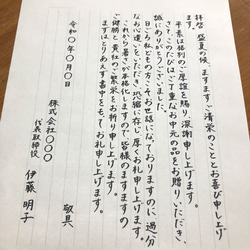 拝啓 盛夏の候、ますますご清栄のこととお喜び申し上げます。
平素は格別のご厚誼を賜り、深謝申し上げます。
さて、このたびはご丁重なお中元の品をお贈りいただき、
誠にありがとうございました。
日ごろ私どもの方こそお世話になっておりますのに、過分
なお心遣いをいただき、恐縮に存じ厚くお礼申し上げます。
これから暑さが本格化しますので、皆様のますますの
ご健勝と貴社のご繁栄をお祈り申し上げます。
まずはとりあえず書中をもってお礼申し上げます。
敬具
令和〇年〇月〇日
株式会社〇〇〇
代表取締役 伊藤 明子